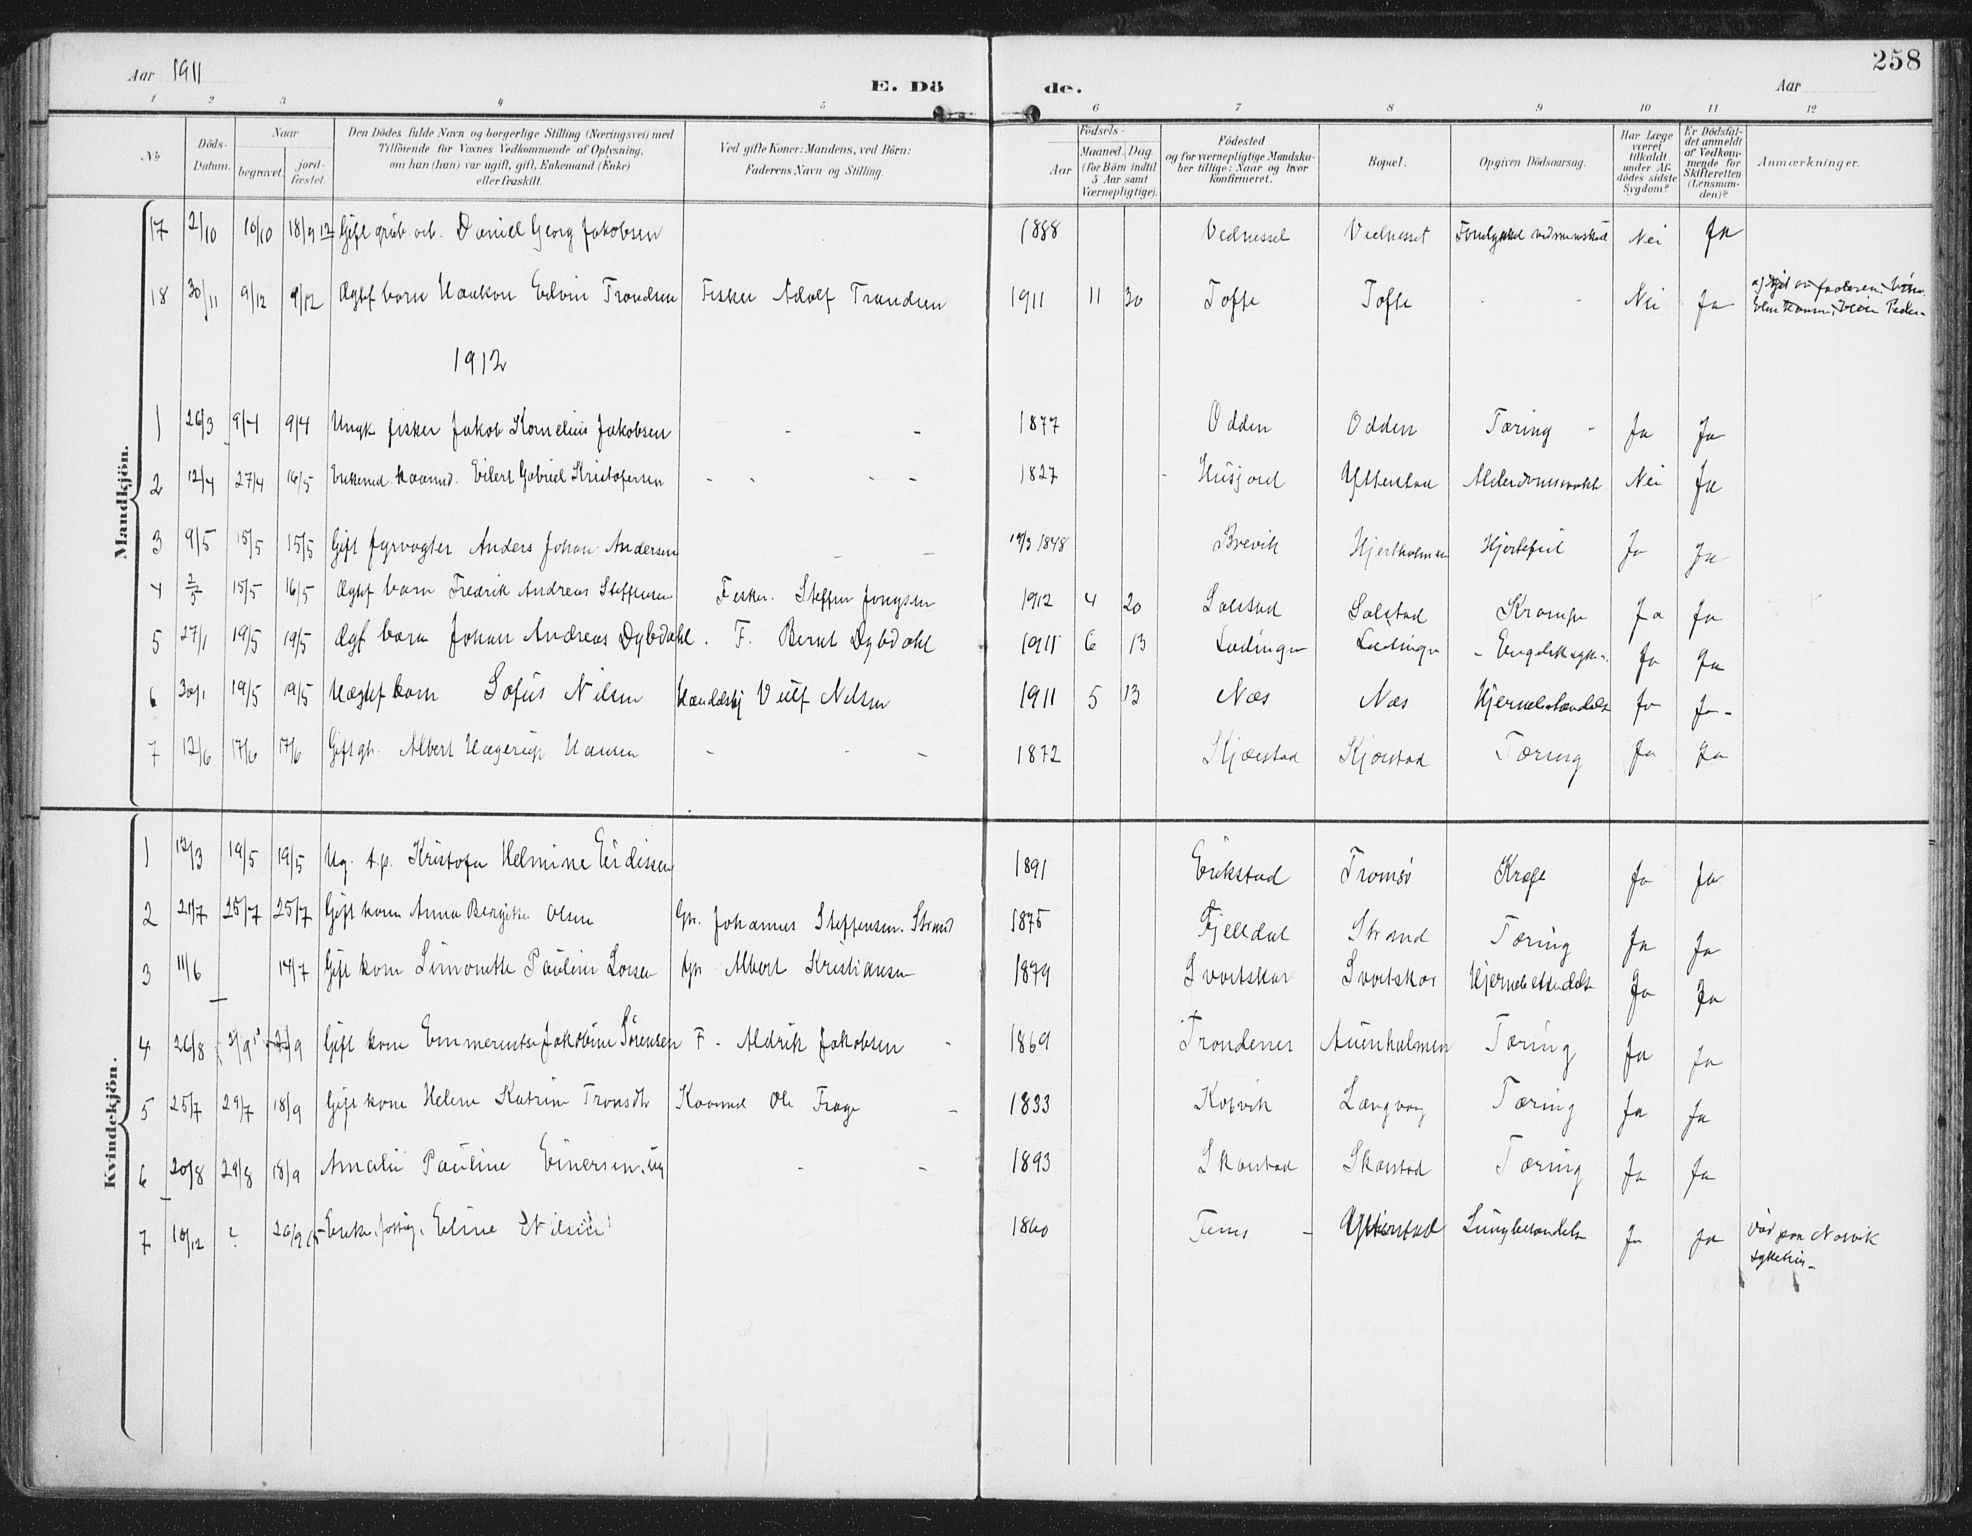 258
Aar 1911
E. Dö de.
Aar
1 2 3 4 5 6 7 8 9 10 11 12
No
Döds-Datum.
Naar
begravet.
jord-fæstet.
Den Dödes fulde Navn og borgerlige Stilling (Næringsvei) med
Tilföiende for Voxnes Vedkommende af Oplysning,
om han (hun) var ugift, gift, Enkemand (Enke)
eller fraskilt.
Ved gifte Koner: Mandens, ved Börn:
Faderens Navn og Stilling.
Födsels-
Aar
Maaned. Dag.
(for Börn indtil
5 Aar samt
Værnepligtige).
Födested
og for værnepligtige Mandska-
ber tillige: Naar og hvor
konfirmeret.
Bopæl.
Opgiven Dödsaarsag.
Har Læge
været
tilkaldt
under Af-
dödes sidste
Sygdom?
Er Dödsfal-
det anmeldt
af Vedkom-
mende for
Skifteretten
(Lensman-
den)?
Anmærkninger.
Mandkjön.
17 2/10 10/10 18/9 12 Gift grub. arb. Daniel Georg Jakobsen 1888 Vednesset Vednesset Nei Ja
18 30/11 9/12 9/12 Ægtef barn Haakon Edvin Trondsen Fisker Adolf Trondsen 1911 11 30 Tofte Tofte - - Nei Ja
1912
1 26/3 9/4 9/4 Ungk fisker Jakob Kornelius Jakobsen - - 1877 Odden Odden Tæring - Ja Ja
2 12/4 27/4 16/5 Enkemd. kaarmd. Eilert Gabriel Kristofersen - - - - 1827 - Husjord Ytterstad Alderdomssvakh Nei Ja
3 9/5 15/5 15/5 Gift fyrvogter Anders Johan Andersen - - 1848 Brevik Hjertholmen Hjertefeil Ja Ja
4 2/5 15/5 16/5 Ægtef barn Fredrik Andreas Steffensen Fisker. Steffen 1912 4 20 Solstad Solstad Krampe Ja Ja
5 27/1 19/5 19/5 Ægf barn Johan Andreas Dybdahl. F. Bernt Dybdahl 1911 6 13 Lødingen Lødingen - Engelsk syke - Ja Ja
6 30/1 19/5 19/5 Uægtef barn Sofus Nilsen Ulf Nilsen 1911 5 13 Næs Næs Hjernebetændelse Ja Ja -
7 12/6 17/6 17/6 Gift gr. Albert Hagerup Hansen - - - 1872 Skjærstad Skjærstad Tæring Ja Ja
Kvindekjön.
1 12/3 19/5 19/5 Ug. t.p. Kristofa Helmine 1891 Erikstad Tromsø Kræft Ja Ja
2 21/7 25/7 25/7 Gift kone Anna Bergitte Olsen Gr. Johannes Steffensen. Strand 1875 Fjelldal Strand Tæring Ja Ja
3 11/6 14/7 Gift kone Simonette Pauline Larsen Gr Albert Kristiansen 1879 Svartskar Svartskar Hjernebetændelse Ja Ja
4 26/8 Gift kone Emmerentse Jakobine Sørensen F. Aldrik Jakobsen - 1869 Trondenes Auenholmen Tæring Ja Ja
5 25/7 29/7 18/9 Gift kone Helene Katrine Kaarmd Ole - 1833 Kobvik Tæring Ja Ja
6 20/8 29/8 18/9 Amalie Pauline Einersen, ug - - 1893 Skarstad Skarstad Tæring Ja Ja
7 10/12 ? 26/9 Enke, fattig, Eline Nilsen 1860 - Ytterstad Lungbetændelse Ja Ja Død paa Narvik
sykehus -